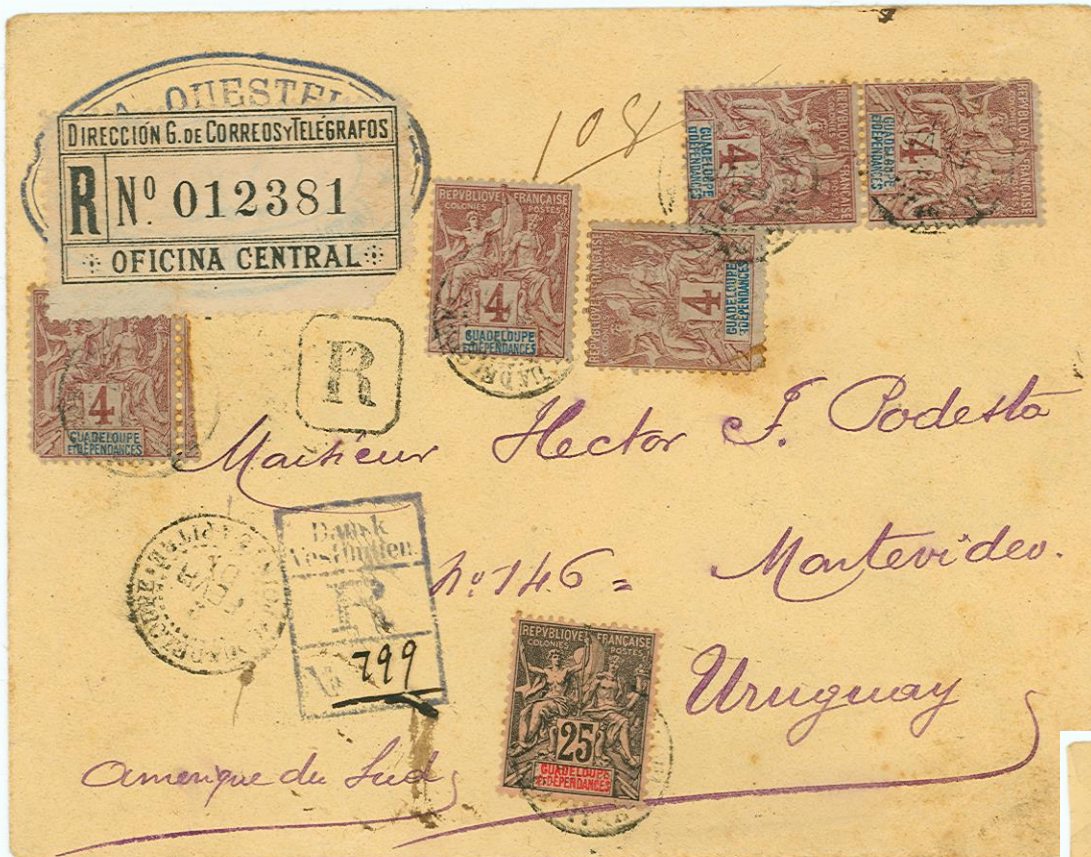 A. QUESTEL
DIRECCIÓN G. DE CORREOS Y TELÉGRAFOS
R No. 012381
OFICINA CENTRAL
108
REPVBLIQVE FRANÇAISE
COLONIES POSTES
4
GUADELOUPE
ET DÉPENDANCES
REPVBLIQVE FRANÇAISE
COLONIES POSTES
4
GUADELOUPE
ET DÉPENDANCES
REPVBLIQVE FRANÇAISE
COLONIES POSTES
4
GUADELOUPE
ET DÉPENDANCES
REPVBLIQVE FRANÇAISE
COLONIES POSTES
4
GUADELOUPE
ET DÉPENDANCES
4
GUADELOUPE
ET DÉPENDANCES
R
Monsieur Hector F. Podestá
No. 146 = Montevideo.
Uruguay
Amerique du Sud
Dansk
Vestindien.
R
No 799
REPVBLIQVE FRANÇAISE
COLONIES POSTES
25
GUADELOUPE
ET DÉPENDANCES